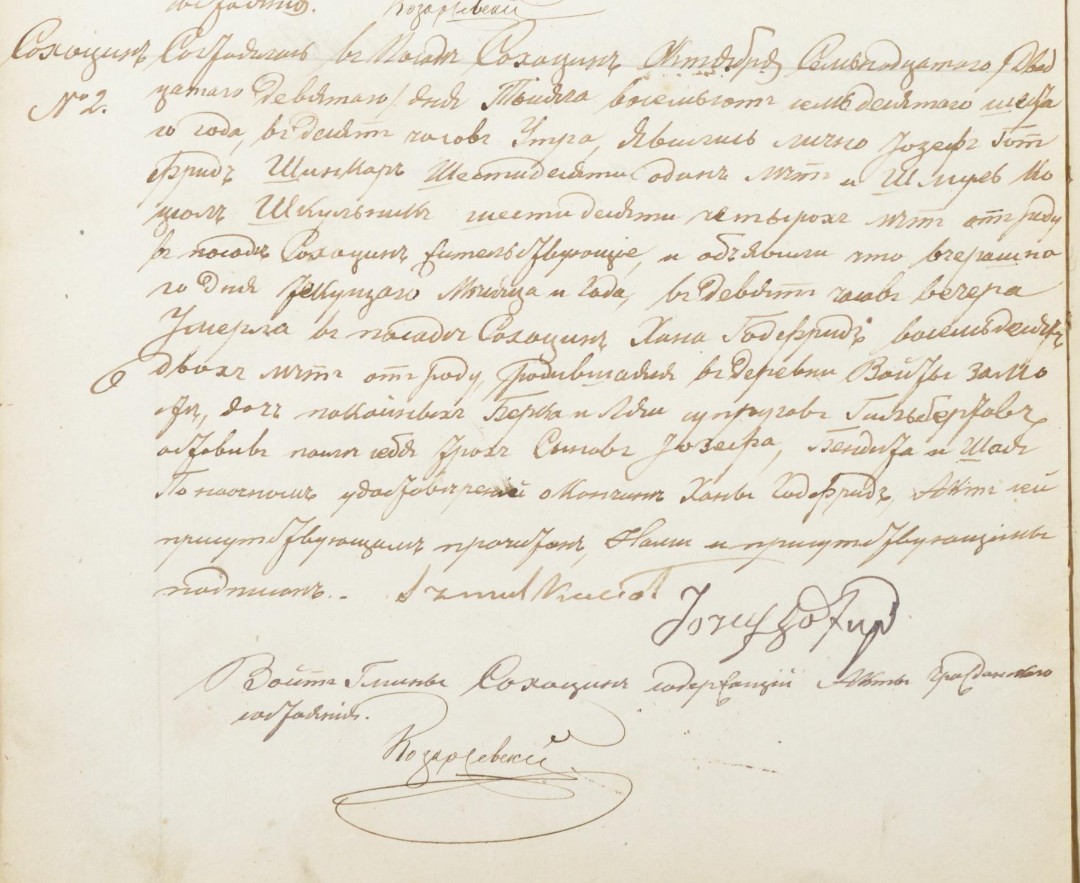 Козаржевскій
Сохоцинъ Состоялось въ посадѣ Сохоцинъ Октября Семьнадцатаго /Двад
№ 2. цатаго Девятаго/ дня Тысяча восемьсотъ семьдесятаго шеста
го года, въ десять часовъ Утра, явились лично Іозефъ Гот
фридъ Шинкарь Шестидесяти одинъ лѣтъ и Шмуль Ко
ціолъ Школьникъ шестидесяти четырохъ лѣтъ отъ роду
въ посадѣ Сохоцинъ жительствующіе, и объявили что вчерашня
го Дня текущаго Мѣсяца и Года, въ Девять часовъ вечера
Умерла въ посадѣ Сохоцинъ Хана Годфридъ восемьдесятъ
двохъ лѣтъ отъ роду, родившаяся въ деревни Войты Замо
дочь покойныхъ Берка и супруговъ
оставивъ послѣ себя трохъ Сыновъ Іозефа, Бендыта и
По наочномъ удостовѣреніи о кончинѣ Ханы Годфридъ, Актъ сей
присутствующимъ прочитанъ, Нами и присутствующими
подписанъ.-
Войтъ Гмины Сохоцинъ содержащій Акты Гражданскаго
состоянія.
Козаржевскій